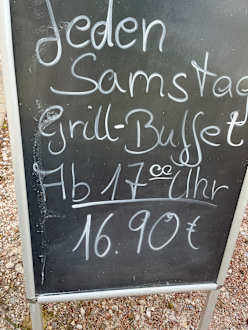 Jeden
Samstag
Grill-Buffet
Ab 17⁰⁰ Uhr
16.90 €